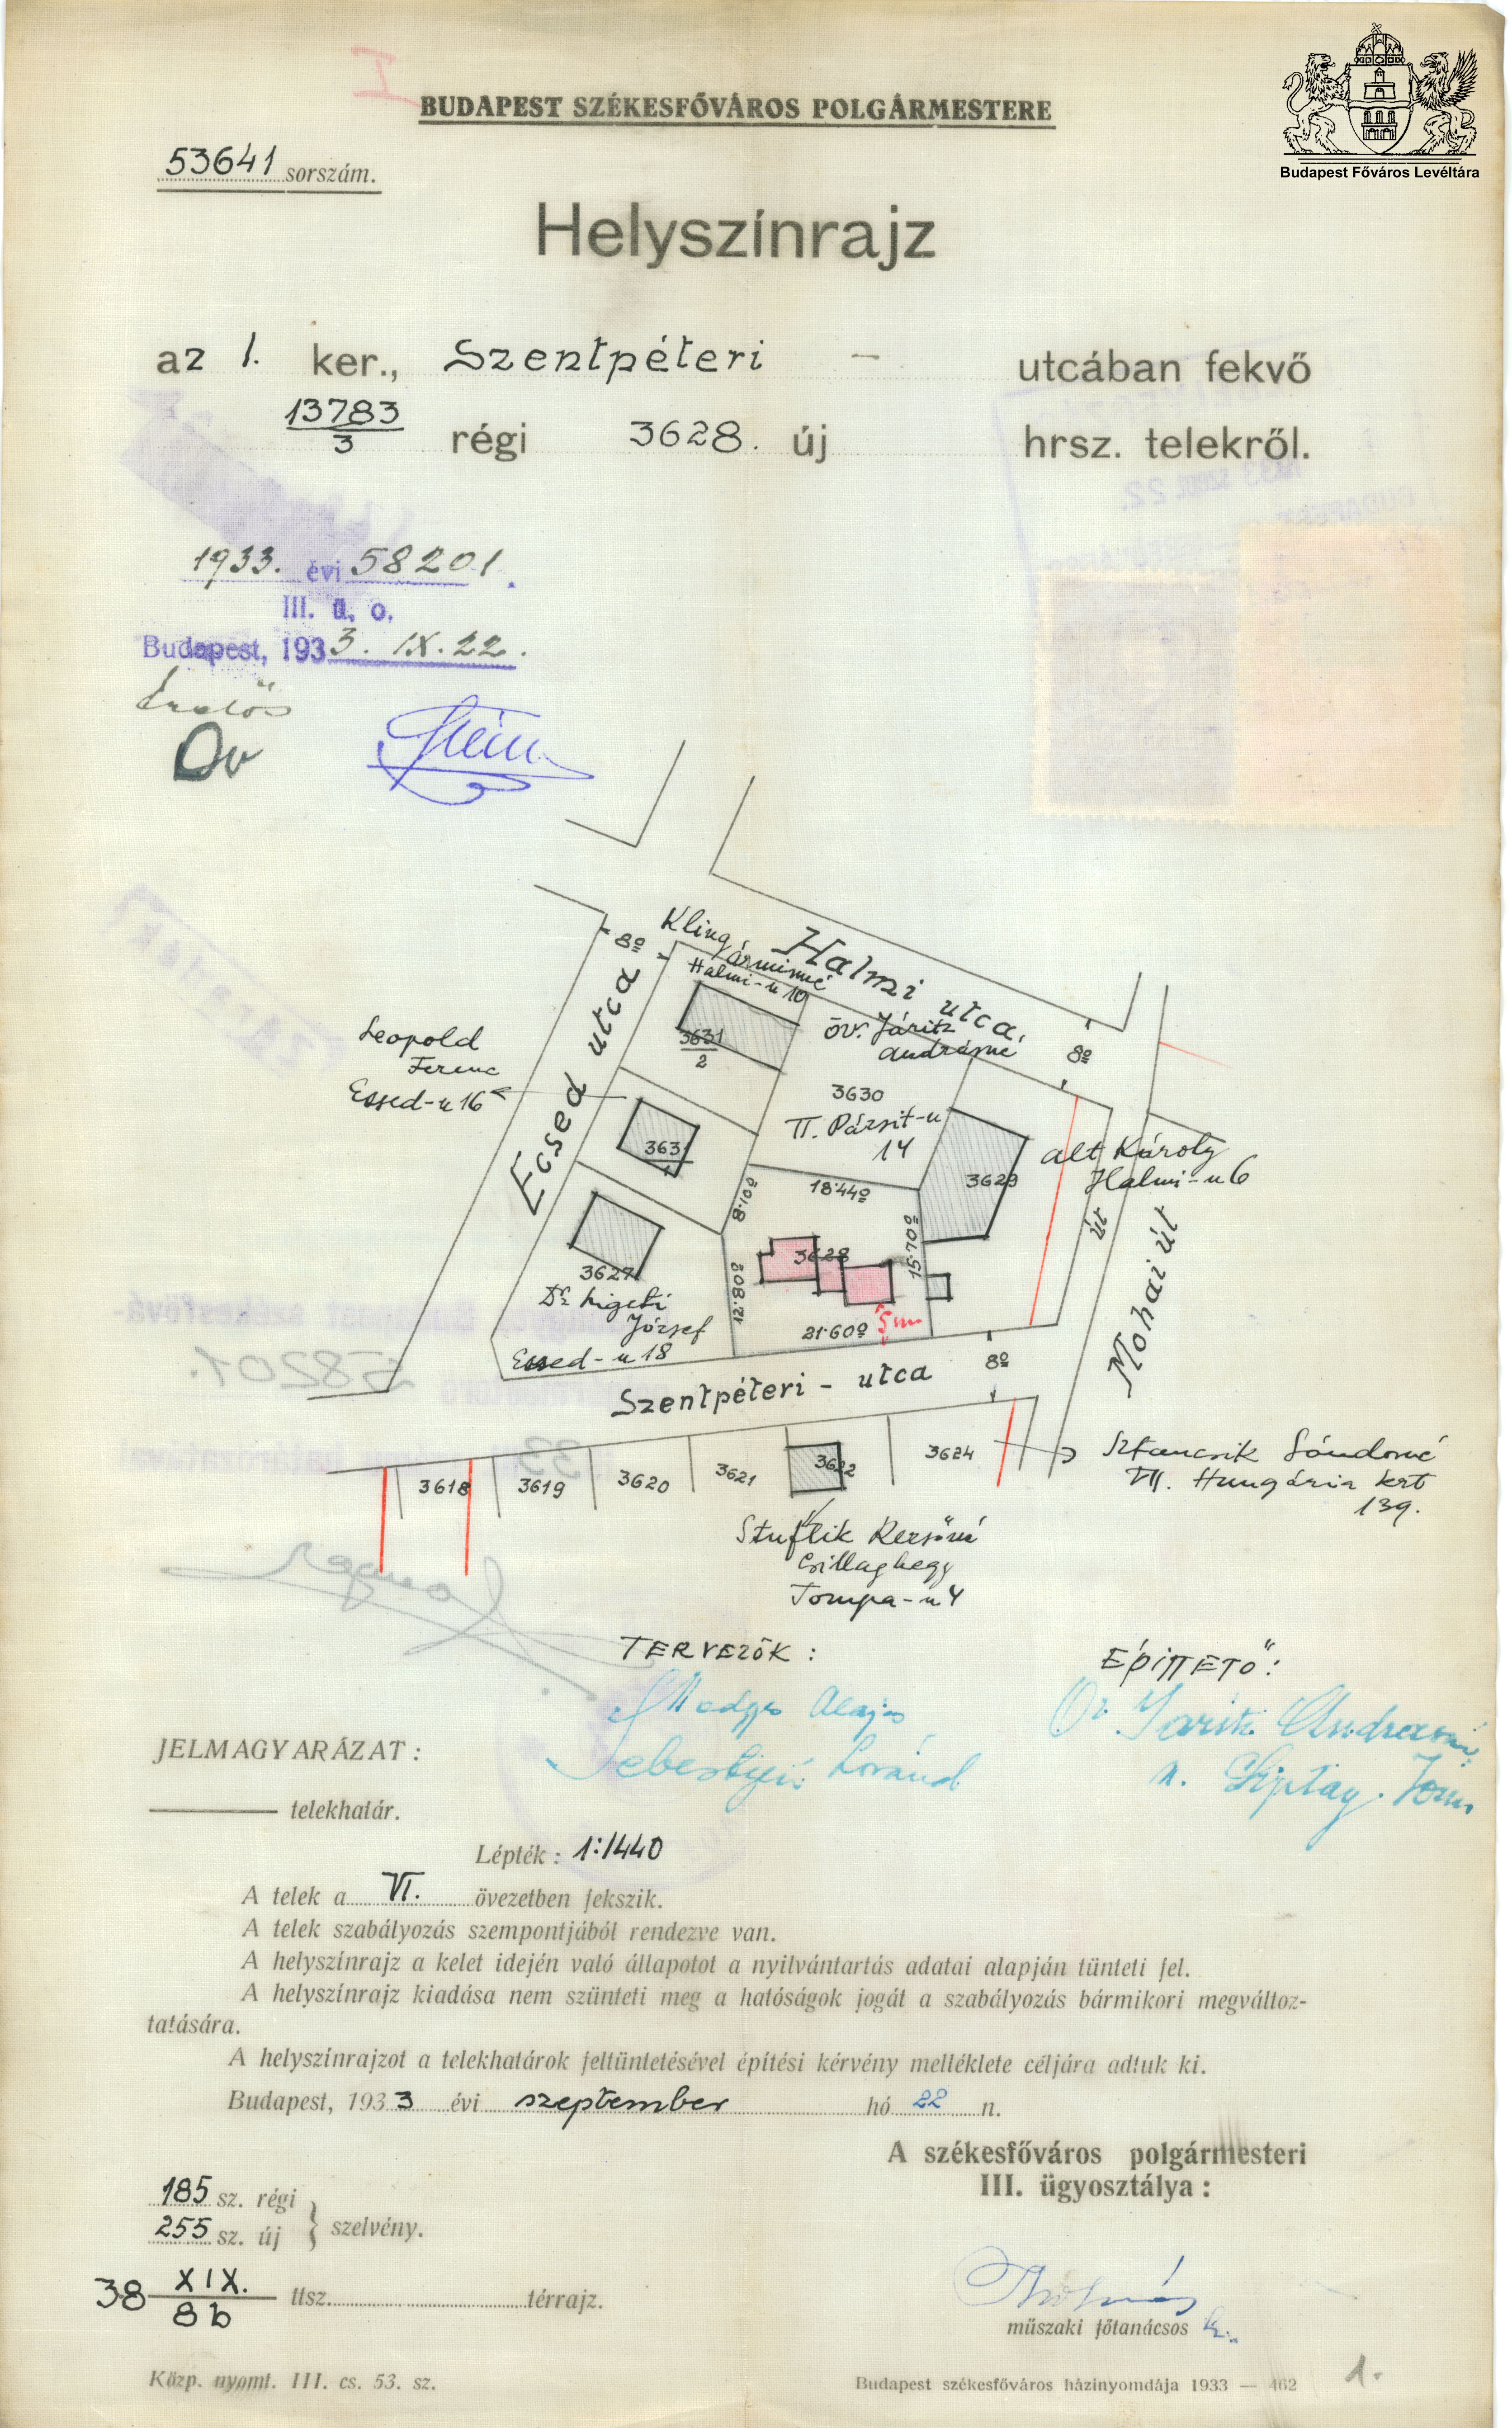 I
BUDAPEST SZÉKESFŐVÁROS POLGÁRMESTERE
Budapest Főváros Levéltára
53641 sorszám.
Helyszínrajz
az I. ker., Szentpéteri - utcában fekvő
13783/3 régi 3628. új hrsz. telekről.
1933. évi 58201.
III. ü. o.
Budapest, 1933. IX. 22.
Kling Árminné
Halmi-u 10
Halmi utca
8º
Ecsed utca
3631/2
öv. Járitz
Andrásné
8º
Leopold
Ferenc
Essed-u 16
3630
II. Pázsit-u
14
3631/1
Alt Károly
Halmi-u 6
3629
18·44º
8·10º
15·70º
út
Mohai út
3628
3627
12·80º
Dr. Ligeti
József
Essed-u 18
21·60º
5m
8º
Szentpéteri - utca
3618
3619
3620
3621
3622
3624
Sztancsik Sándorné
VII. Hungária krt
139.
Stuflik Rezsőné
Csillaghegy
Tompa-u 4
TERVEZŐK :
ÉPÍTTETŐ :
Sebestyén Loránd
JELMAGYARÁZAT :
telekhatár.
Lépték : 1:1440
A telek a VI. övezetben fekszik.
A telek szabályozás szempontjából rendezve van.
A helyszínrajz a kelet idején való állapotot a nyilvántartás adatai alapján tünteti fel.
A helyszínrajz kiadása nem szünteti meg a hatóságok jogát a szabályozás bármikori megváltoz-
tatására.
A helyszínrajzot a telekhatárok feltüntetésével építési kérvény melléklete céljára adtuk ki.
Budapest, 1933 évi szeptember hó 22 n.
A székesfőváros polgármesteri
III. ügyosztálya :
185 sz. régi
255 sz. új } szelvény.
38 XIX./8b ttsz. térrajz.
műszaki főtanácsos
Közp. nyomt. III. cs. 53. sz.
Budapest székesfőváros házinyomdája 1933 — 462
1.